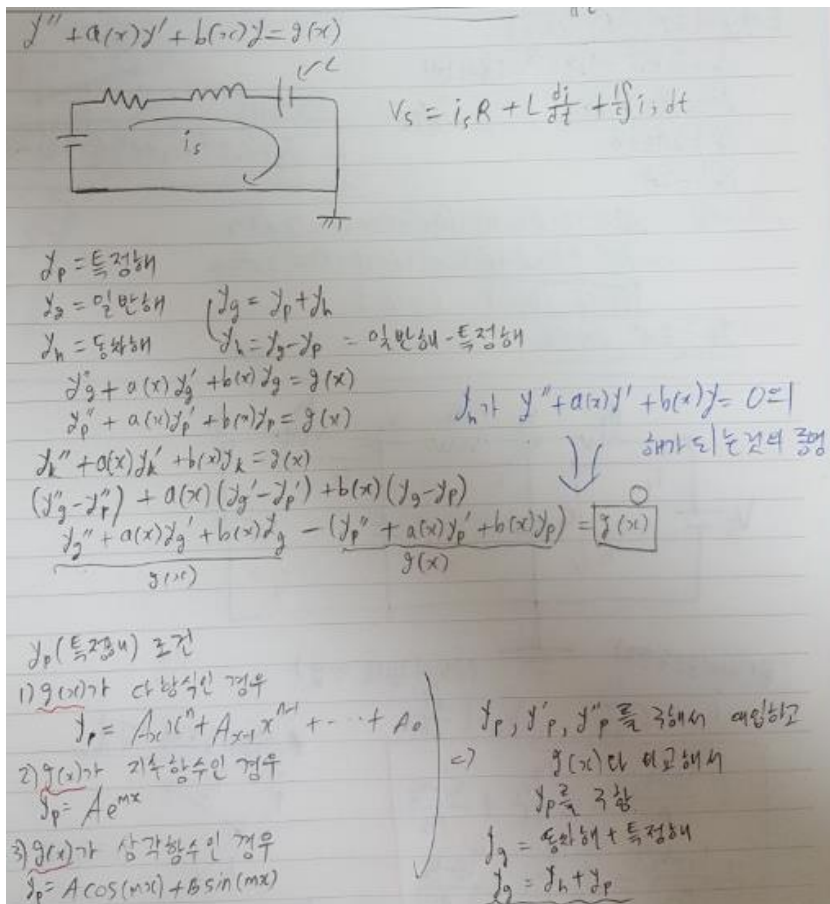 y'' + a(x)y' + b(x)y = g(x)
C
i_s
V_s = i_s R + L di/dt + 1/c ∫ i_s dt
y_p = 특정해
y_g = 일반해
y_h = 동차해
y_g = y_p + y_h
y_h = y_g - y_p = 일반해 - 특정해
y_g'' + a(x)y_g' + b(x)y_g = g(x)
y_p'' + a(x)y_p' + b(x)y_p = g(x)
y_h가 y'' + a(x)y' + b(x)y = 0의
해가 되는것의 증명
y_h'' + a(x)y_h' + b(x)y_h = g(x)
(y_g'' - y_p'') + a(x)(y_g' - y_p') + b(x)(y_g - y_p)
0
y_g'' + a(x)y_g' + b(x)y_g - (y_p'' + a(x)y_p' + b(x)y_p) = g(x)
g(x)
g(x)
y_p(특정해) 조건
1) g(x)가 다항식인 경우
y_p = A_x x^n + A_{x-1} x^{n-1} + ... + A_0
2) g(x)가 지수함수인 경우
y_p = Ae^{mx}
3) g(x)가 삼각함수인 경우
y_p = A cos(mx) + B sin(mx)
y_p, y'_p, y''_p를 구해서 대입하고
=) g(x)와 비교해서
y_p를 구함
y_g = 동차해 + 특정해
y_g = y_h + y_p